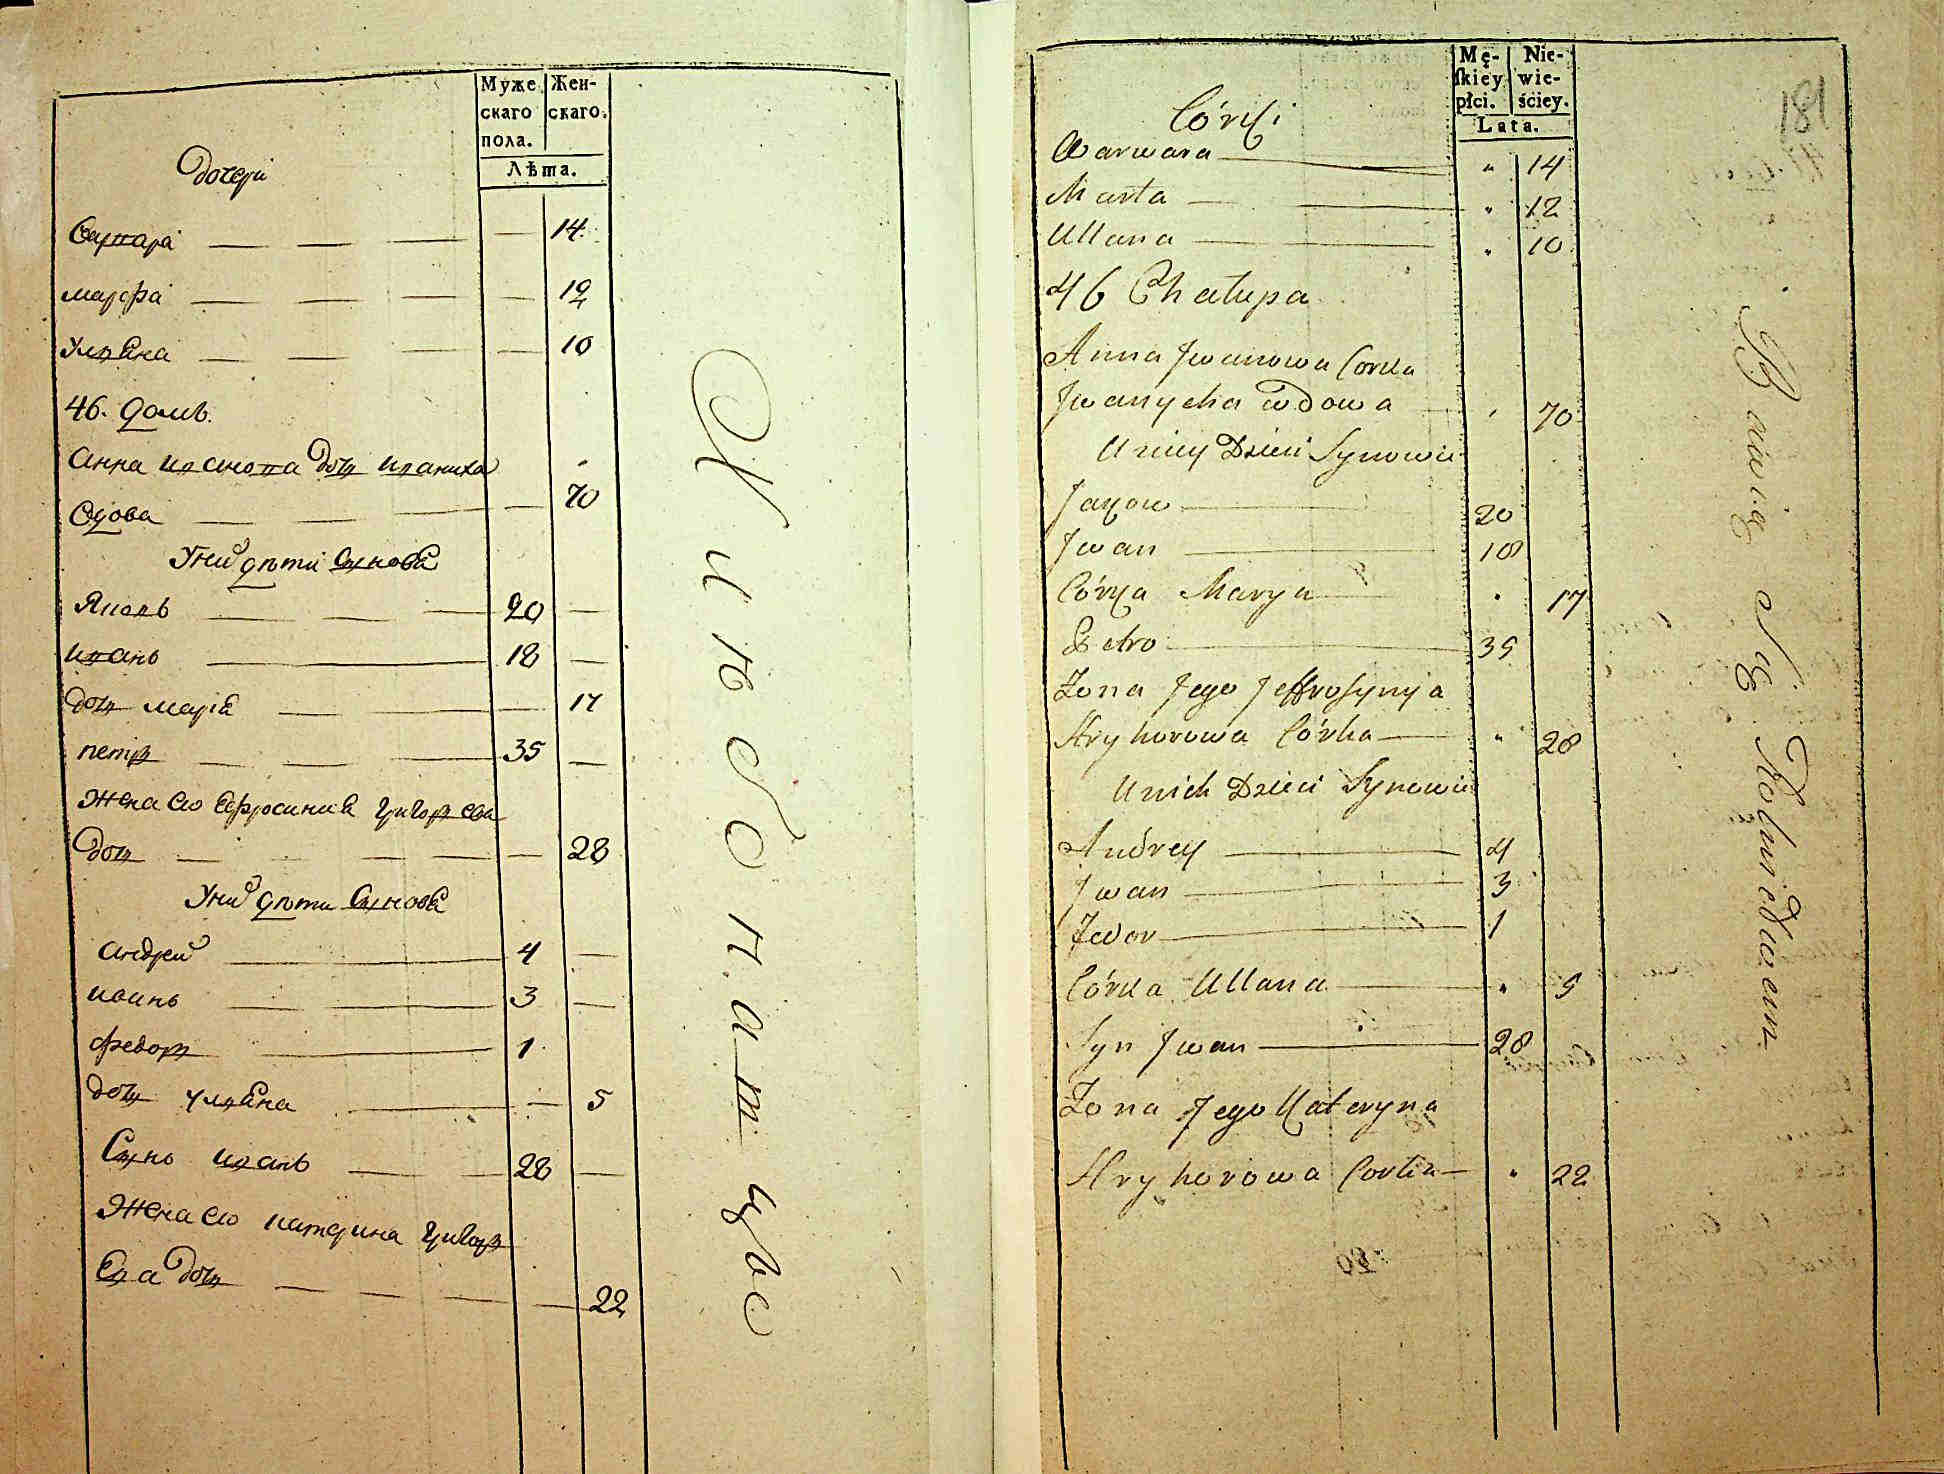 Муже
скаго
пола.
Жен-
скаго.
Лѣта.
дочери
Варвара 14
марфа 12
Уляна 10
46. домъ.
Анна иванова дочь иваниха
вдова 70
У ней дѣти сынова
Яковъ 20
иванъ 18
дочь мария 17
петръ 35
Жена его Ефросиния григорьева
дочь 28
У них дѣти сынова
андрей 4
иванъ 3
федоръ 1
дочь уляна 5
Сынъ иванъ 28
Жена его катерина григорь
Ева дочь 22
Хлѣбопашцы
181
Mę-
skiey
płci.
Nie-
wie-
ściey.
Lata.
Córki
Warwara " 14
Marta " 12
Ullana " 10
46 Chałupa
Anna Jwanowa Corka
Jwanycha wdowa " 70
U niey Dzieci Synowie
Jakow 20
Jwan 18
Córka Marya " 17
Petro 35
Żona Jego Jeffrosynija
Hryhorowa Córka " 28
U nich Dzieci Synowie
Andrey 4
Jwan 3
Fedor 1
Córka Ullana " 5
Syn Jwan 28
Żona Jego Kateryna
Hryhorowa Corka " 22
Bawią się Rolnictwem